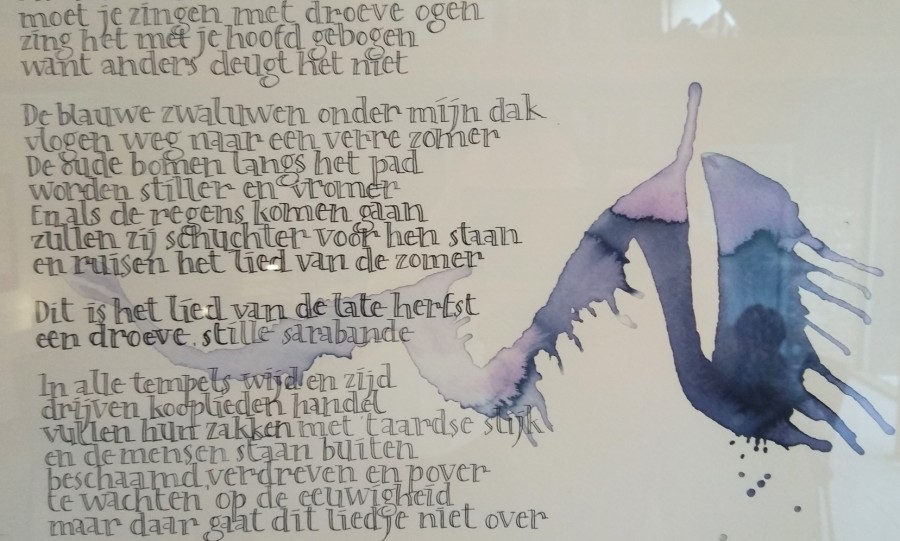 moet je zingen met droeve ogen
zing het met je hoofd gebogen
want anders deugt het niet
De blauwe zwaluwen onder mijn dak
vlogen weg naar een verre zomer
De oude bomen langs het pad
worden stiller en vromer
En als de regens komen gaan
zullen zij schuchter voor hen staan
en ruisen het lied van de zomer
Dit is het lied van de late herfst
een droeve, stille sarabande
In alle tempels wijd en zijd
drijven kooplieden handel
vullen hun zakken met 'taardse slijk
en de mensen staan buiten
beschaamd, verdreven en pover
te wachten op de eeuwigheid
maar daar gaat dit liedje niet over